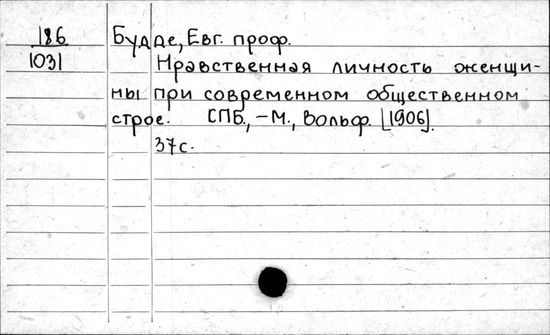 186
1031
Будде, Евг. проф.
Нравственная личность женщи-
ны при современном общественном
строе. СПБ., -М., Вольф. [1906].
37 с.